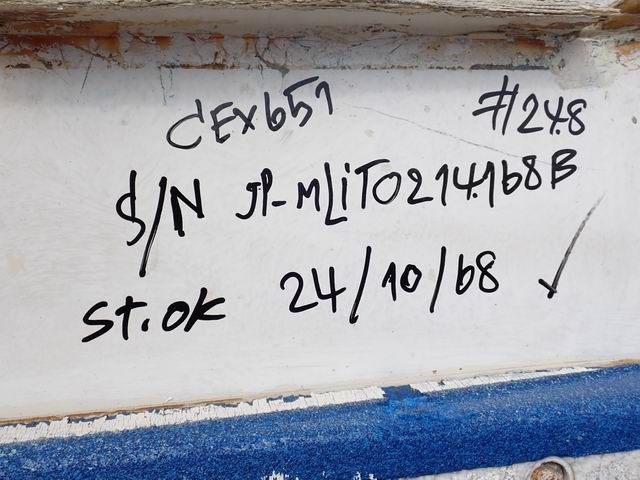 CEX651 #248
S/N JP-MLiTO214168B
ST.OK 24/10/68 ✓